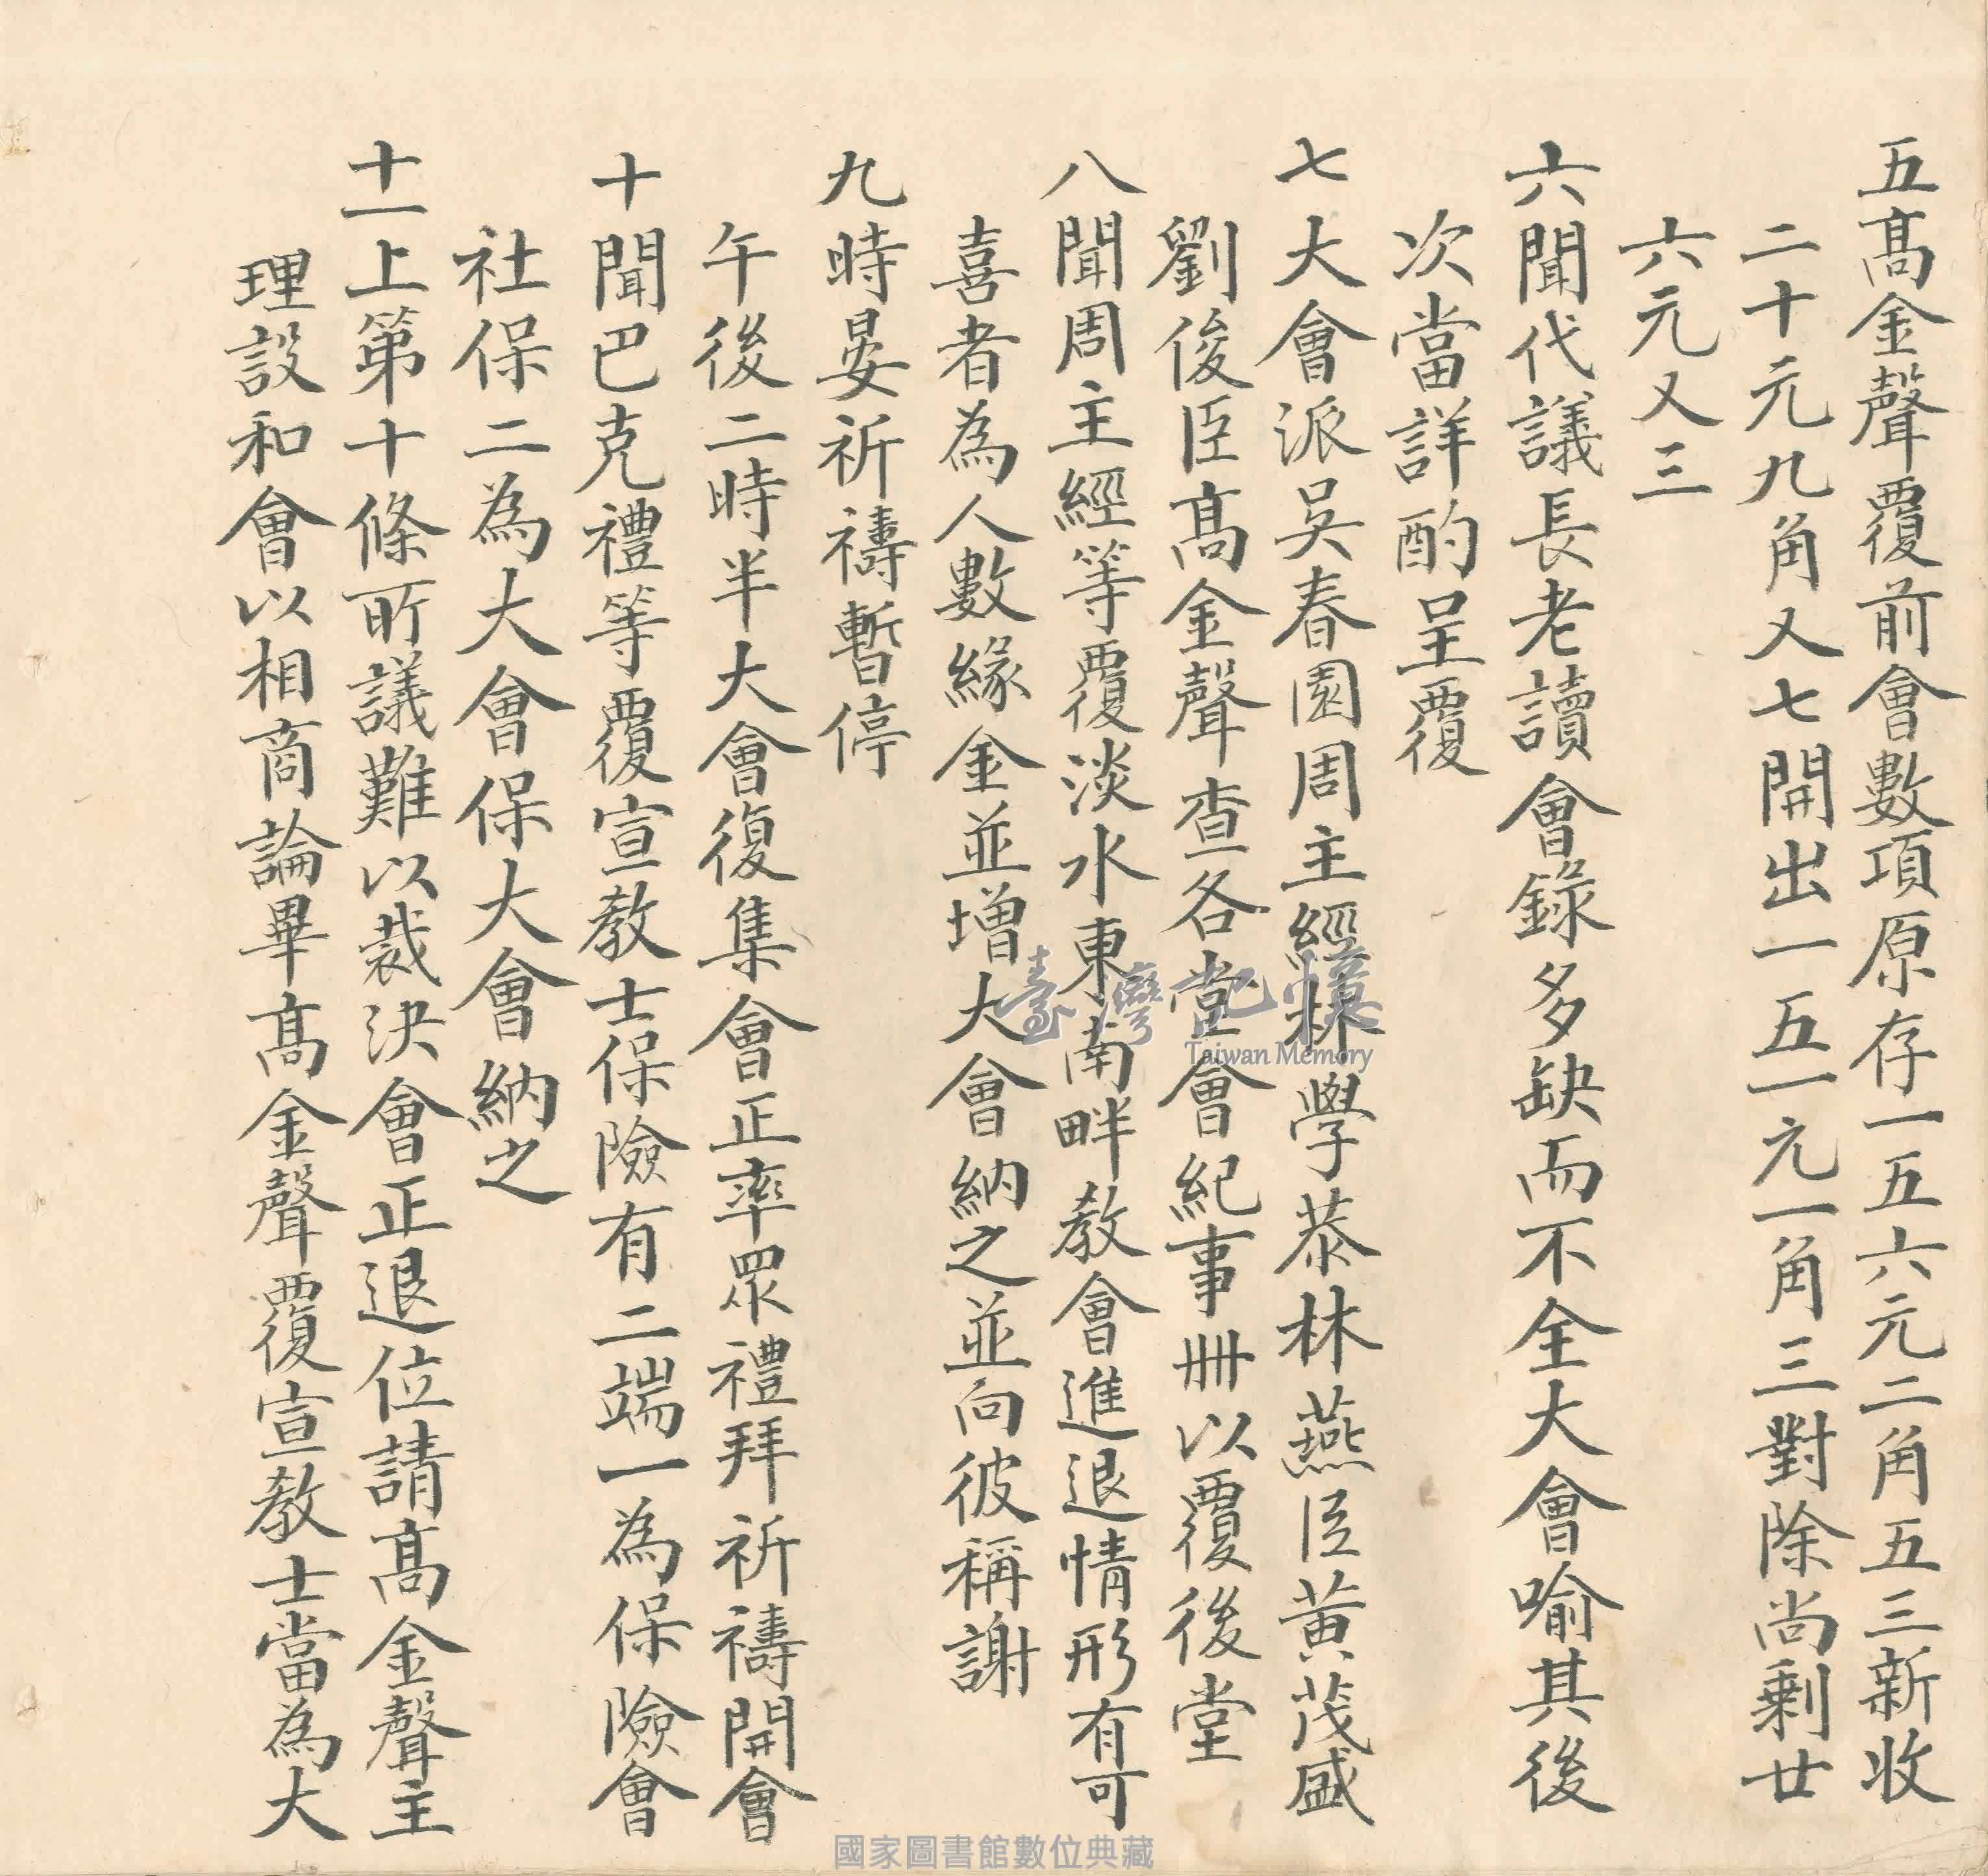 五髙金聲覆前會數項原存一五六元二角五三新收
二十元九角又七開出一五一元一角三對除尚剩廿
六元又三
六聞代議長老讀會錄多缺而不全大會喻其後
次當詳酌呈覆
七大會派吳春園周主經林學恭林燕臣黃茂盛
劉俊臣髙金聲查各堂會紀事冊以覆後堂
八聞周主經等覆淡水東南畔教會進退情形有可
喜者為人數緣金並增大會納之並向彼稱謝
九時晏祈禱暫停
午後二時半大會復集會正率眾禮拜祈禱開會
十聞巴克禮等覆宣教士保險有二端一為保險會
社保二為大會保大會納之
十一上第十條所議難以裁決會正退位請髙金聲主
理設和會以相商論畢髙金聲覆宣教士當為大
臺灣記憶
Taiwan Memory
國家圖書館數位典藏